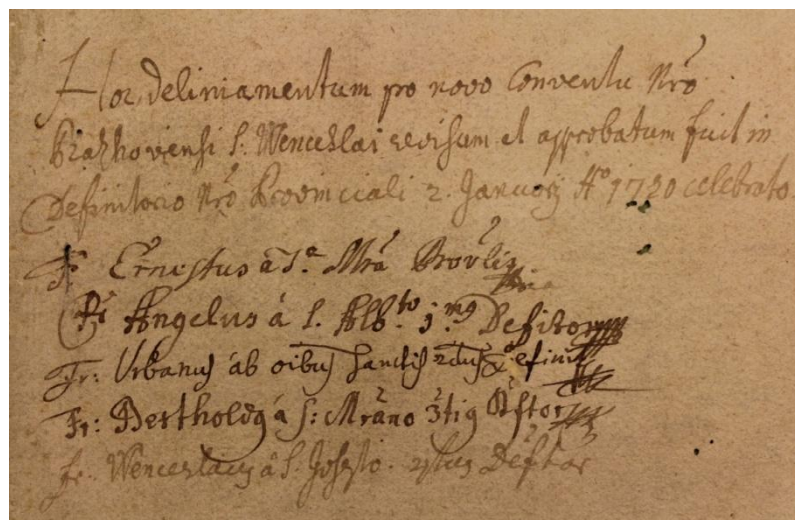 Hoc deliniamentum pro novo Conventu Nrõ
Prazhoviensi S: Wenceslai revisum et approbatum fuit in
Definitorio Nrõ Provinciali 2. Januarij Aº 1720 celebrato.
Fr. Ernestus à Sª Mrã Provlis
Fr Angelus á S. Alb.to j.mg Defitor
Fr: Urbanus áb oibus Sanctis 2dus Definit
Fr: Bertholdg á S: Mrãno 3tig Dftor
fr. Wenceslaus á S. Josepho 4tus Deftor